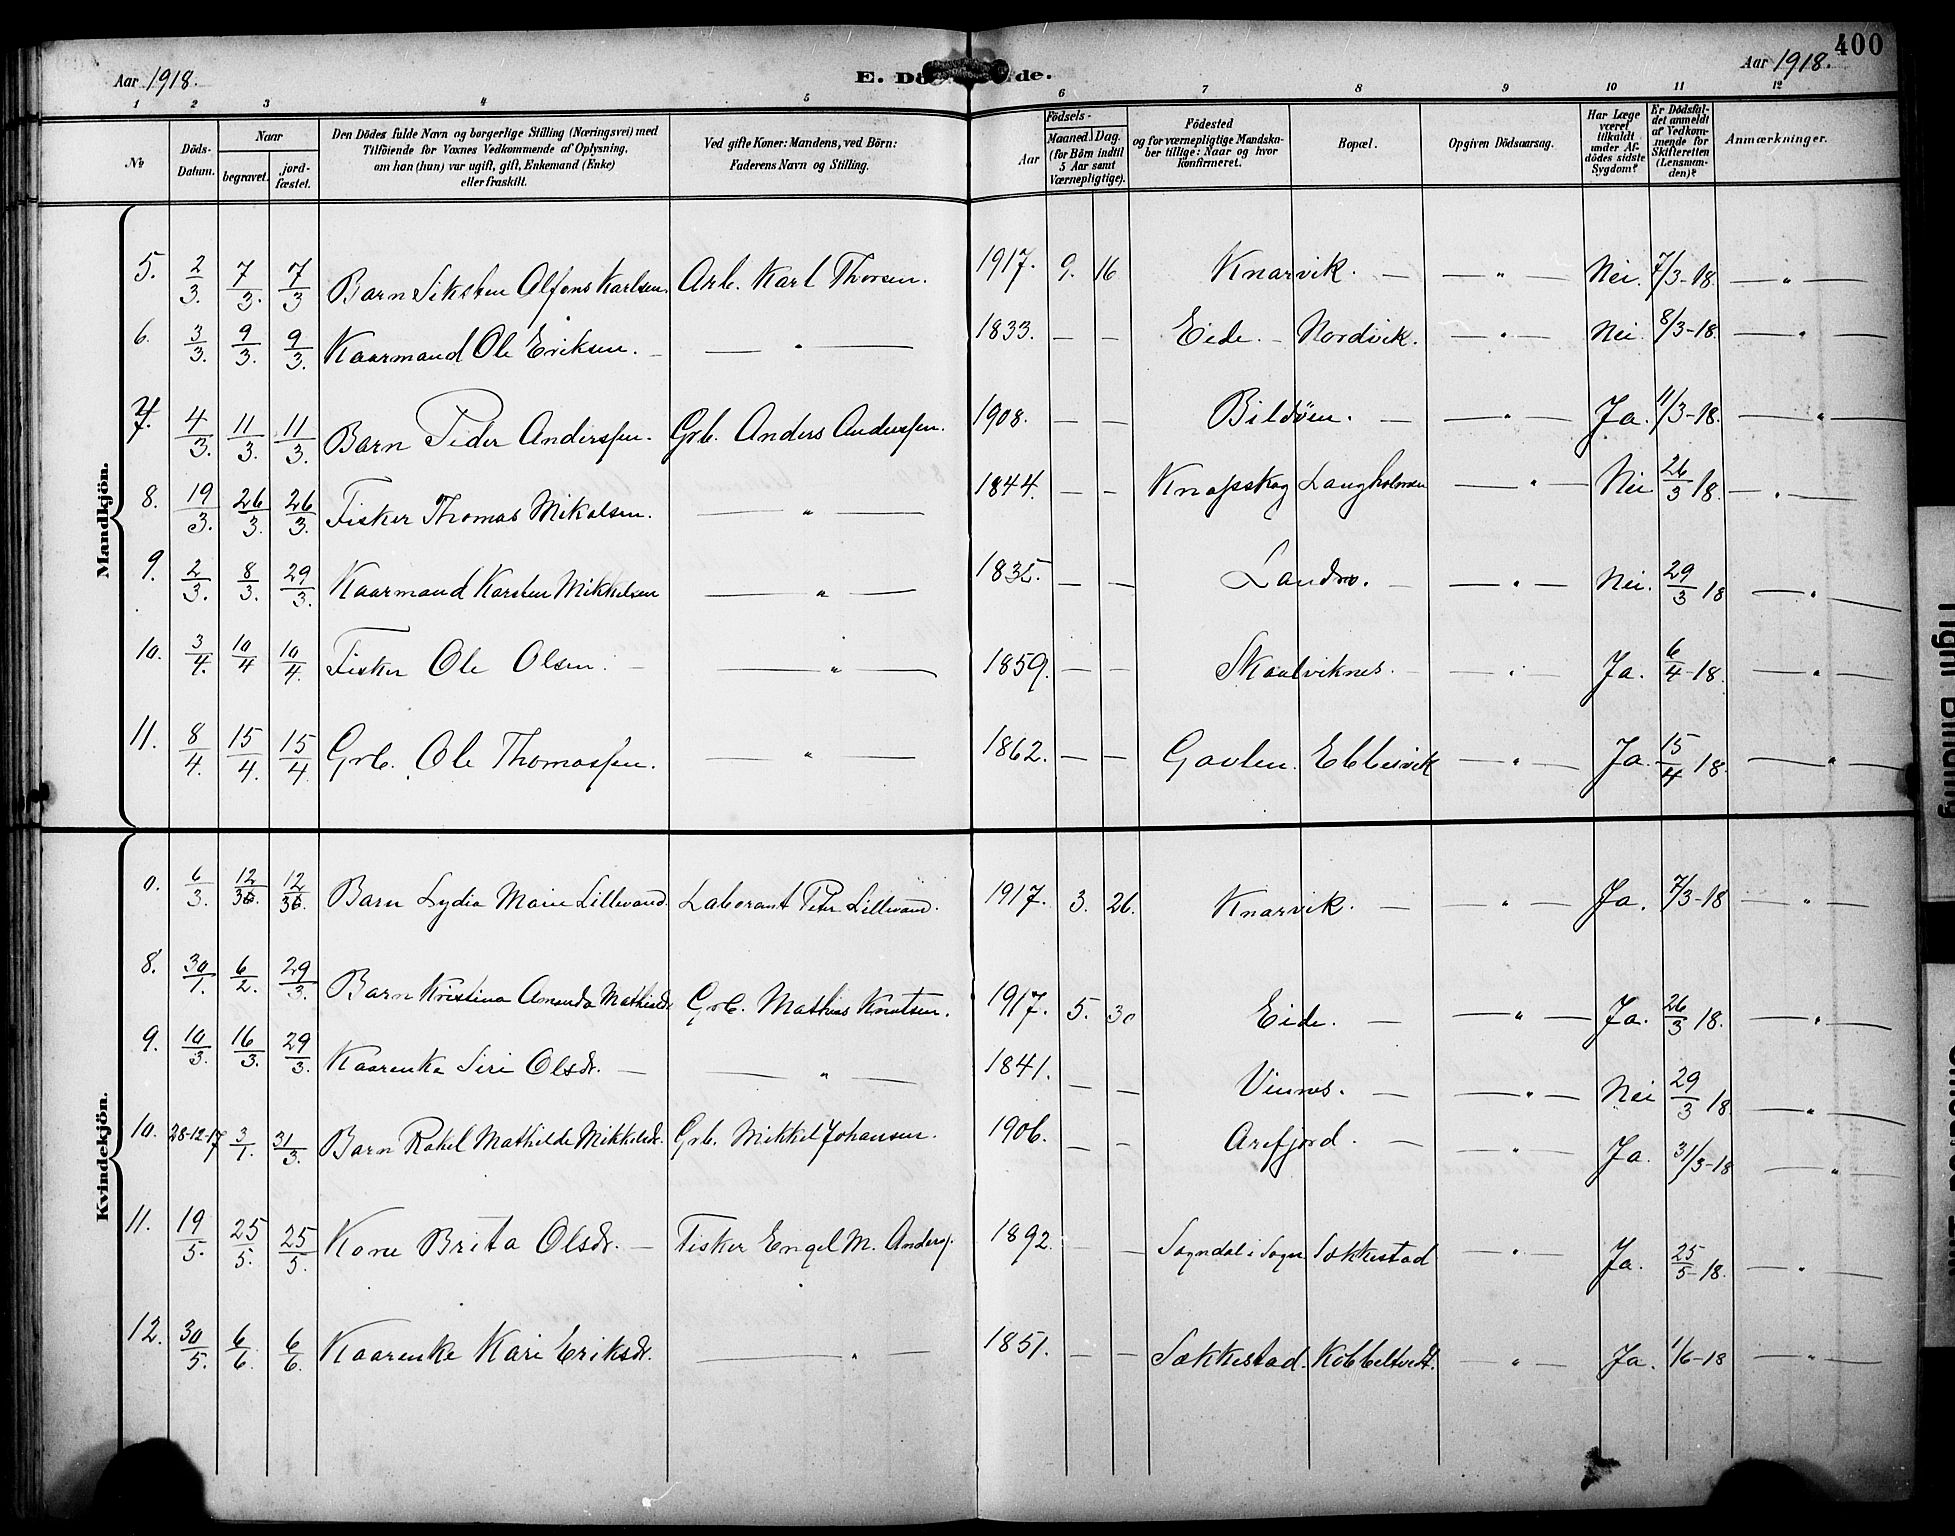 400
Aar 1918. E. Dö de. Aar 1918.
1 2 3 4 5 6 7 8 9 10 11 12
No
Döds-Datum.
Naar
begravet.
jord-fæstet.
Den Dödes fulde Navn og borgerlige Stilling (Næringsvei) med
Tilföiende for Voxnes Vedkommende af Oplysning,
om han (hun) var ugift, gift, Enkemand (Enke)
eller fraskilt.
Ved gifte Koner: Mandens, ved Börn:
Faderens Navn og Stilling.
Födsels-
Aar
Maaned. Dag.
(for Börn indtil
5 Aar samt
Værnepligtige).
Födested
og for værnepligtige Mandska-
ber tillige: Naar og hvor
konfirmeret.
Bopæl.
Opgiven Dödsaarsag.
Har Læge
været
tilkaldt
under Af-
dödes sidste
Sygdom?
Er Dödsfal-
det anmeldt
af Vedkom-
mende for
Skifteretten
(Lensman-
den)?
Anmærkninger.
Mandkjön.
5. 2/3. 7/3. 7/3 Barn Siksten Alfons Karlsen. Arb. Karl Thorsen. 1917. 9. 16 Knarvik. — — " — Nei. 7/3-18. — " —
6. 3/3. 9/3. 9/3. Kaarmand Ole Eriksen. — — " — 1833. — — Eide. — Nordvik. — " — Nei. 8/3-18. — " —
7. 4/3. 11/3. 11/3. Barn Peder Anderssen. Grb. Anders Anderssen. 1908. — — Bildöen. — — " — Ja. 11/3-18. — " —
8. 19/3. 26/3. 26/3. Fisker Thomas Mikalsen. — " — 1844. — — Knapskog Langholmen — " — Nei 26/3 18. — " —
9. 2/3. 8/3. 29/3. Kaarmand Karsten Mikkelsen — " — 1835. — — Landro. — — " — Nei. 29/3 18 — " —
10. 3/4. 10/4 10/4. Fisker Ole Olsen. — — " — 1859. — — Skaalviknes. — — " — Ja. 6/4-18. — " —
11. 8/4. 15/4. 15/4 Grb. Ole Thomassen. — " — 1862. — — Gavlen. Ebbesvik — " — Ja. 15/4 18. — " —
Kvindekjön.
6/3. 12/3. 12/3. Barn Lydia Marie Lillevand. Laborant Peter Lillevand. 1917. 3. 26. Knarvik. — — " — Ja. 7/3-18 — " —
8. 30/1. 6/2. 29/3. Barn Kristina Amanda Mathisdr. Grb. Mathias Knutsen. 1917. 5. 30 Eide. — — " — Ja. 26/3 18. — " —
9. 10/3. 16/3. 29/3. Kaarenke Siri Olsdr. — — " — 1841. — — Vinnes. — — " — Nei 29/3 18 — " —
10. 28-12-17 3/1. 31/3. Barn Rakel Mathilde Mikkelsdr. Grb. Mikkel Johansen. 1906. — — Arefjord. — — " — Ja. 31/3-18 — " —
11. 19/5. 25/5. 25/5. Kone Brita Olsdr. — Fisker Engel M. Anders. 1892. — — Sogndal i Sogn Sekkestad — " — Ja. 25/5-18. — " —
12. 30/5. 6/6. 6/6. Kaarenke Kari Eriksdr. — " — 1851. — — Sekkestad. Kobbeltvedt. — " — Ja. 1/6-18 — " —